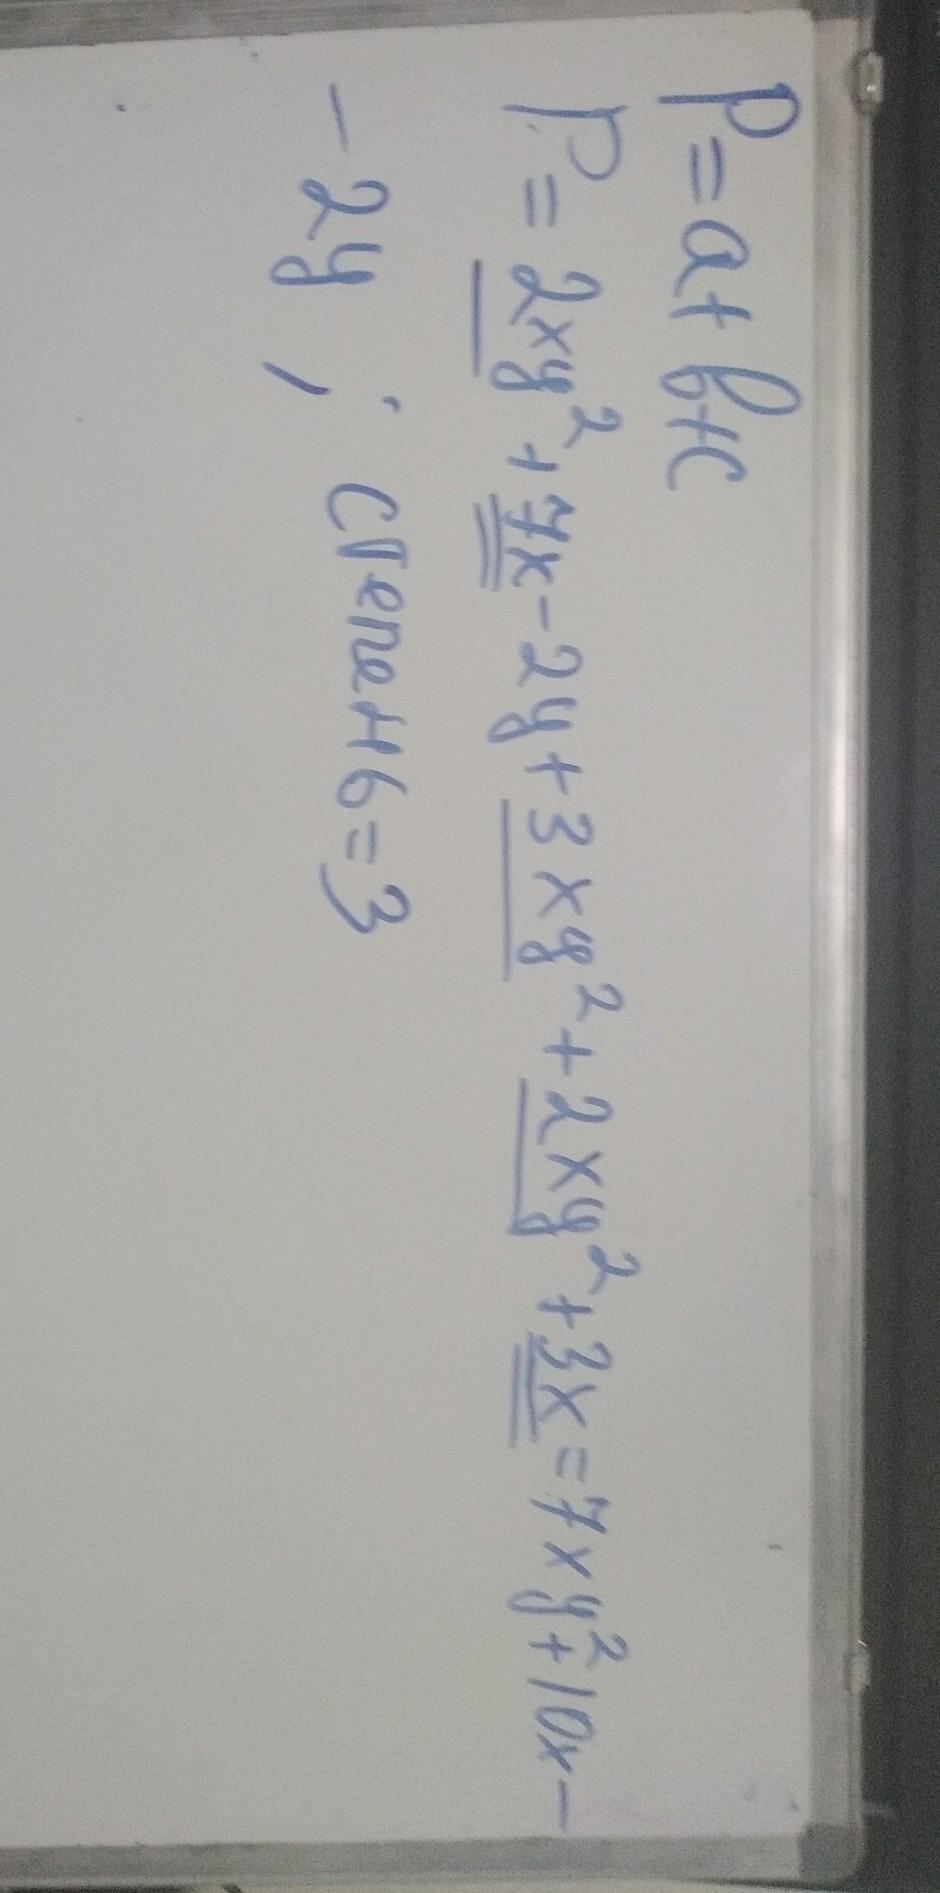 P=a+b+c
P=2xy²+7x-2y+3xy²+2xy²+3x=7xy²+10x-
-2y; степень=3